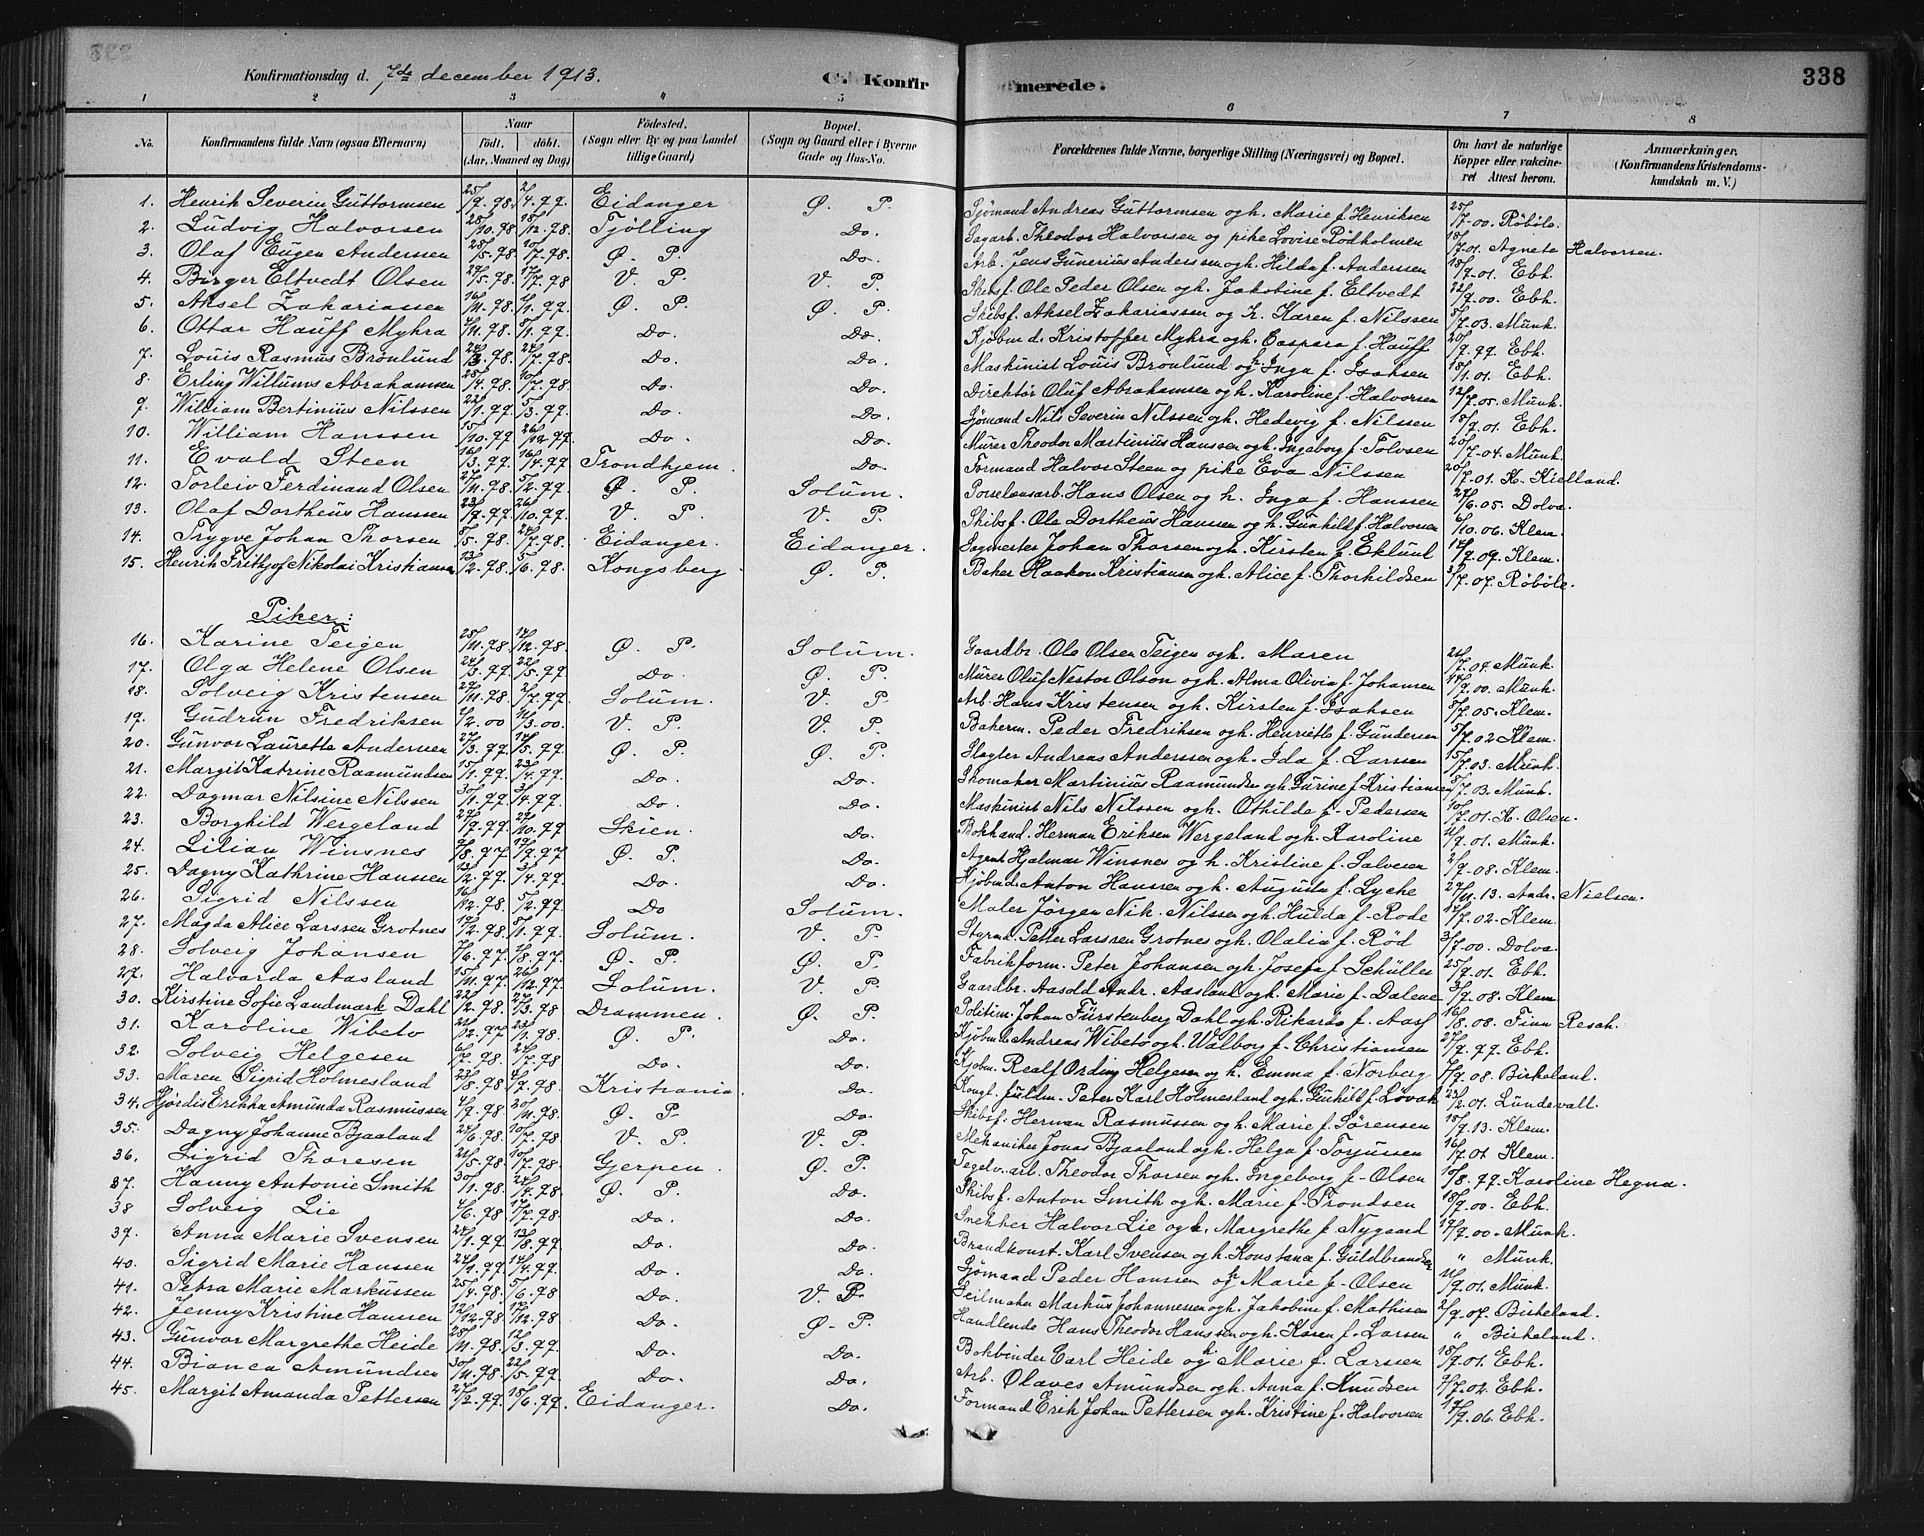 338
Konfirmationsdag d. 7de december 1913. C. Konfirmerede.
1 2 3 4 5 6 7 8
No. Konfirmandens fulde Navn (ogsaa Efternavn) Naar födt. döbt. (Aar, Maaned og Dag) Födested. (Sogn eller By og paa Landet tillige Gaard) Bopæl. (Sogn og Gaard eller i Byerne Gade og Hus-No. Forældrenes fulde Navne, borgerlige Stilling (Næringsvei) og Bopæl. Om havt de naturlige Kopper eller vakcineret Attest herom. Anmærkninger. (Konfirmandens Kristendomskundskab m. V.)
1. Henrik Severin Guttormsen 25/9.98. 2/4.99. Eidanger Ø. P. Sjömand Andreas Guttormsen og h. Marie f. Henriksen 25/7-00. Röböle.
2. Ludvig Halvorsen 28/10.98 15/12.98. Tjölling Do. Sagarb. Theodor Halvorsen og pike Lovise Rödholmen 18/7.01. Agnete Halvorsen.
3. Olaf Eugen Andersen 28/5.98. 10/7.98 Ø. P. Do. Arb. Jens Gunerius Anderssen og h. Hilda f. Andersen 18/9-01. Ebh.
4. Birger Eltvedt Olsen 29/5.98. 17/7.98 V. P. V. P. Skibsf. Ole Peder Olsen og h. Jakobine f. Eltvedt 22/9.00. Ebh.
5. Aksel Zakariassen 16/11.98. 4/1.99. Ø. P. Ø. P. Skibsf. Aksel Zakariassen og h. Karen f. Nilssen 8/7-03. Munk.
6. Ottar Hauff Myhra 4/11.98. 5/1.99. Do. Do. Kjöbmd. Kristoffer Myhra og Caspara f. Hauff 20/9.99. Ebh.
7. Louis Rasmus Bronlund 24/3.98. 24/7.98. Do. Do. Maskinist Louis Bronlund og h. Inga f. Isaksen 18/1.01. Ebh.
8. Erling Willums Abrahamsen 28/4.98. 10/7.98. Do. Do. Direktör Oluf Abrahamsen og h. Karoline f. Halvorsen 12/7.05. Munk.
9. William Bertinius Nilssen 22/1.99. 5/3.99. Do. Do. Sjömand Nils Severin Nilssen og h. Hedevig f. Nilssen 18/9.01. Ebh.
10. William Hanssen 15/10.99. 26/12.99. Do. Do. Murer Theodor Martinius Hanssen og h. Ingeborg f. Tolvsen 20/7-04. Munk.
11. Evald Steen 16/3.99. 16/4.99. Trondhjem. Do. Formand Halvor Steen og pike Eva Nilssen 20/7.01. K. Kielland.
12. Torleiv Ferdinand Olsen 27/11.98. 5/2.99. Ø. P. Solum. Porselænsarb. Hans Olsen og h. Inga f. Hanssen 27/6.05. Dolva.
13. Olaf Dortheus Hanssen 23/9.99. 26/10.99. V. P. V. P. Skibsf. Ole Dortheus Hanssen og h. Gunhild f. Halvorsen 6/10.06. Klem.
14. Trygve Johan Thorsen 5/5.98. 24/7.98. Eidanger. Eidanger. Sagmester Johan Thorsen og h. Kirsten f. Eklund 14/9.09. Klem.
15. Henrik Frithjof Nikolai Kristiansen 13/2.98. 5/6.98. Kongsberg. Ø. P. Baker Haakon Kristiansen og h. Alice f. Thorkildsen 3/7.07. Röböle.
Piker:
16. Karine Teigen 25/11.98. 14/12.98. Ø. P. Solum. Gaardbr. Ole Olsen Teigen og h. Maren 21/7.04 Munk.
17. Olga Helene Olsen 24/3.99. 22/5.99. Do. Ø. P. Murer Oluf Nestor Olson og h. Alma Olivia f. Johansen 14/9.00. Munk.
18. Solveig Kristensen 29/11.98. 2/7.99. Solum. V. P. Arb. Hans Kristensen og h. Kirsten f. Isaksen 8/7.05. Klem.
19. Gudrun Fredriksen 2/2.00 14/3.00. V. P. V. P. Bakerm. Peder Fredriksen og h. Henriette f. Gundersen 5/7.02 Klem.
20. Gunvor Laurette Andersen 27/3.99. 14/5.99. Ø. P. Ø. P. Slagter Andreas Anderssen og h. Ida f. Larssen 15/7.03. Munk.
21. Margit Katrine Raamundsen 15/1.99. 23/4.99. Do. Do. Skomaker Martinius Raamundsen og Gurine f. Kristiansen 8/7.B. Munk.
22. Dagmar Nilsine Nilssen 30/1.99. 3/4.99. Do. Do. Maskinist Nils Nilssen og h. Othilde f. Pedersen 10/7.01. K. Olsen.
23. Borghild Wergeland 29/9.99. 29/10.99. Skien. Do. Bokhand. Herman Eriksen Wergeland og h. Karoline 21/9.01. Munk.
24. Lilian Winsnes 9/8.97 19/9.97 Ø. P. Do. Agent Hjalmar Winsnes og h. Kristine f. Salvesen 2/9-08. Klem.
25. Dagny Kathrine Hanssen 13/2.99. 3/4.99. Do. Do. Kjöbmd. Anton Hanssen og h. Augusta f. Lyche 27/11.13. Andr. Nielsen.
26. Sigrid Nilssen 16/12.98. 5/2.99. Do Solum. Maler Jörgen Nik. Nilssen og h. Hulda f. Rode 17/7.02. Klem.
27. Magda Alice Larssen Grotnes 19/2.98. 5/1.99. Solum. V. P. Styrmd. Petter Larssen Grotnes og h. Olalia f. Rød 3/7.00. Dolva.
28. Solveig Johansen 7/6.97. 1/8.97. Ø. P. Ø. P. Fabrikform. Peter Johansen og h. Josefa f. Schüller 25/9.01. Ebh.
29. Halvarda Aasland 15/11.97 26/12.97 Solum. V. P. Gaardbr. Aasold Andr. Aasland og h. Marie f. Dalene 3/9.08. Klem
30. Kirstine Sofie Landmark Dahl 22/2.98. 27/3.98 Drammen. Ø. P. Politim. Johan Fürstenberg Dahl og h. Rikarda f. Aars 16/8.08. Finn Resch.
31. Karoline Wibeto 21/12.97 23/1.98. Ø. P. Do. Kjöbmd. Andreas Wibetö og h. Walborg f. Christiansen 27/9.99. Ebh.
32. Solveig Helgesen 6/2.98. 24/7.98 Do. Do. Kjöbm. Realf Ording Helgesen og h. Emma f. Norberg 7/9.08. Birkeland.
33. Maren Sigrid Holmesland 23/8.98 4/9.98. Kristiania Do. Kongl. fuldm. Peter Karl Holmesland og h. Gunhild f. Lövak 23/2.01. Lundevall.
34. Hjördis Erikka Amunda Rasmussen 4/9.98. 20/11.98. Ø. P. Do. Skibsf. Herman Rasmussen og h. Marie f. Sörensen 18/9.13. Klem.
35. Dagny Johanne Bjaaland 24/6.98. 10/7.98. V. P. V. P. Mekaniker Jonas Bjaaland og h. Helga f. Torjussen 16/7.01 Klem.
36. Sigrid Thoresen 21/5-98. 10/7.98. Gjerpen. Ø. P. Teglv.arb. Theodor Thorsen og h. Ingeborg f. Olsen 10/8.99. Karoline Hegna.
37. Hanny Antonie Smith 30/1.98. 24/4.98. Ø. P. Do. Skibsf. Anton Smith og h. Marie f. Trondsen 18/7.00. Ebh.
38 Solveig Lie 4/6.98 17/7.98. Do. Do. Snekker Halvor Lie og h. Margrethe f. Nygaard 17/9.00. Munk.
39. Anna Marie Svensen 22/1.99. 13/8.99. Do. Do. Brandkonst. Karl Svensen og h. Konstanse f. Guldbrandsen " Munk.
40. Sigrid Marie Hanssen 24/1.99. 14/4.99. Do. Do. Sjömand Peder Hanssen og h. Marie f. Olsen 21/9.01. Munk.
41. Petra Marie Markussen 25/4.98. 5/6.98. Do. V. P. Seilmaker Markus Johannesen og h. Jakobine f. Mathisen 2/9.07. Birkeland.
42. Jenny Kristine Hanssen 12/12.98. 17/12.98. Do. Ø. P. Handlende Hans Theodor Hanssen og h. Karen f. Larsen " Birkeland.
43. Gunvor Margrethe Heide 28/11.98. 12/3.99. Do. Do. Bokbinder Carl Heide og h. Marie f. Larssen 18/9.01. Ebh.
44. Bianca Amundsen 30/11.98. 22/5.99. Do. Do. Arb. Olaves Amundsen og h. Anna f. Knudsen 9/7.02. Ebh.
45. Margit Amanda Pettersen 27/2.99. 18/6.99. Eidanger. Do. Formand Erik Johan Pettersen og h. Kristine f. Halvorsen 17/9.06. Ebh.